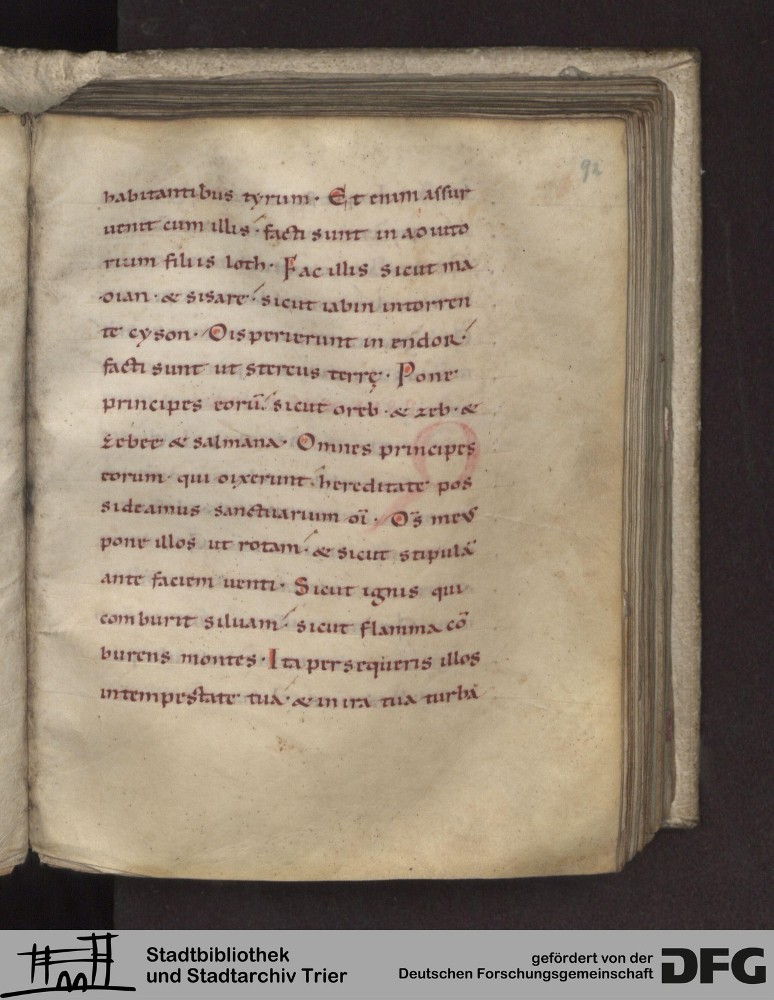 92
habitantibus tyrum · Et enim assur
uenit cum illis · facti sunt in adiuto
rium filiis loth · Fac illis sicut ma
dian · & sisare · sicut iabin intorren
te cyson · Disperierunt in endor ·
facti sunt ut stercus terrę · Pone
principes eorū · sicut oreb · & zeb · &
zebee & salmana · Omnes principes
eorum · qui dixerunt · hereditate pos
sideamus sanctuarium dī · Ds̄ meus
pone illos ut rotam · & sicut stipulā
ante faciem uenti · Sicut ignis qui
comburit siluam · sicut flamma cō
burens montes · Ita persequeris illos
intempestate tua · & in ira tua turbā
Stadtbibliothek
und Stadtarchiv Trier
gefördert von der
Deutschen Forschungsgemeinschaft
DFG